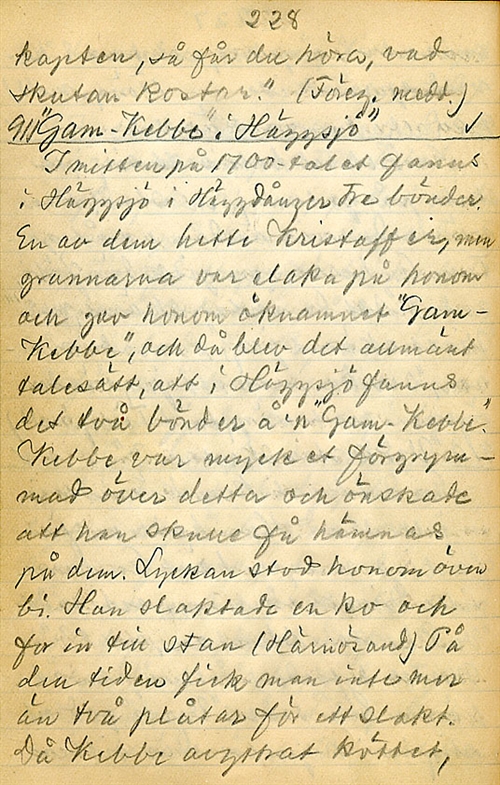 228
kapten, så får du höra, vad
skutan kostar." (Föreg. medd.)
91) "Gam-Kebbe" i Häggsjö" ✓
I mitten på 1700-talet fanns
i Häggsjö i Häggdånger tre bönder.
En av dem hette Kristoffer, men
grannarna var elaka på honom
och gav honom öknamnet "Gam-
Kebbe", och då blev det allmänt
talesätt, att i Häggsjö fanns
det två bönder å 'n "Gam-Kebbe".
Kebbe var mycket förgrym-
mad över detta och önskade
att han skulle få hämnas
på dem. Lyckan stod honom även
bi. Han slaktade en ko och
for in till stan (Härnösand) På
den tiden fick man inte mer
än två plåtar för ett slakt.
Då Kebbe avyttrat köttet,